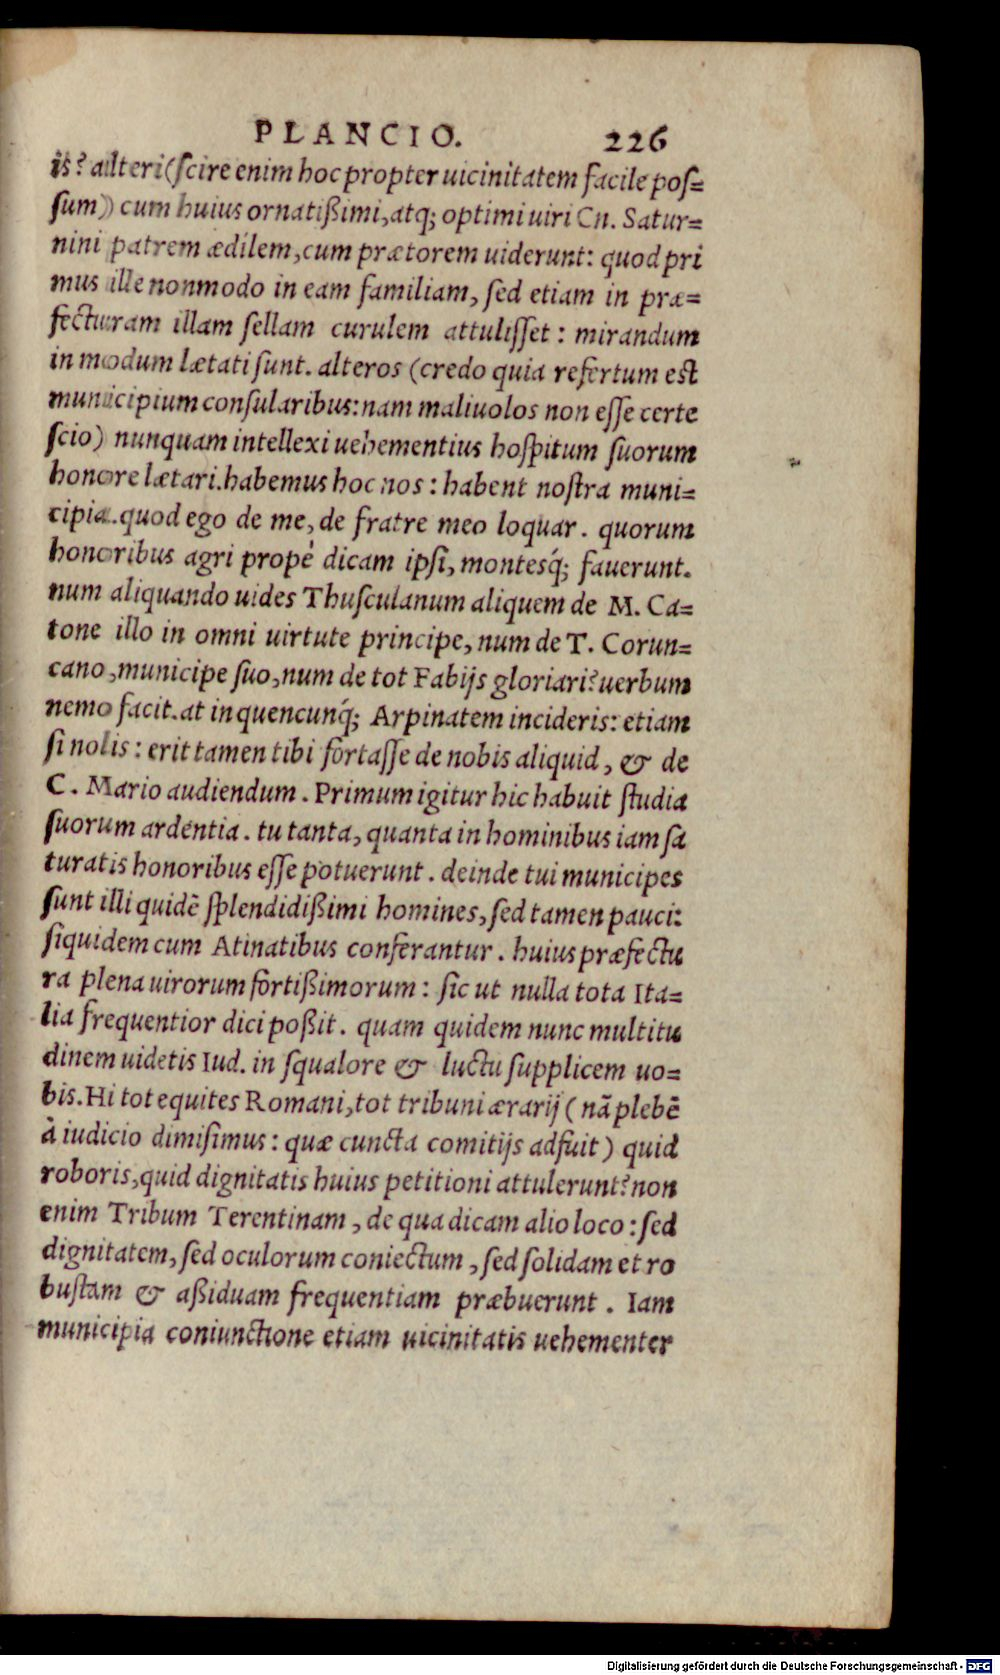 PLANCIO. 226
is? alteri (scire enim hoc propter uicinitatem facile pos=
sum) cum huius ornatißimi, atq; optimi uiri Cn. Satur=
nini patrem ædilem, cum prætorem uiderunt: quod pri
mus ille nonmodo in eam familiam, sed etiam in præ=
fecturam illam sellam curulem attulisset: mirandum
in modum lætati sunt. alteros (credo quia refertum est
municipium consularibus: nam maliuolos non esse certe
scio) nunquam intellexi uehementius hospitum suorum
honore lætari. habemus hoc nos: habent nostra muni=
cipia. quod ego de me, de fratre meo loquar. quorum
honoribus agri propè dicam ipsi, montesq́; fauerunt.
num aliquando uides Thusculanum aliquem de M. Ca=
tone illo in omni uirtute principe, num de T. Corun=
cano, municipe suo, num de tot Fabijs gloriari? uerbum
nemo facit. at in quencunq́; Arpinatem incideris: etiam
si nolis: erit tamen tibi fortasse de nobis aliquid, & de
C. Mario audiendum. Primum igitur hic habuit studia
suorum ardentia. tu tanta, quanta in hominibus iam sa
turatis honoribus esse potuerunt. deinde tui municipes
sunt illi quidē splendidißimi homines, sed tamen pauci:
siquidem cum Atinatibus conferantur. huius præfectu
ra plena uirorum fortißimorum: sic ut nulla tota Ita=
lia frequentior dici poßit. quam quidem nunc multitu
dinem uidetis Iud. in squalore & luctu supplicem uo=
bis. Hi tot equites Romani, tot tribuni ærarij (nā plebē
à iudicio dimisimus: quæ cuncta comitijs adfuit) quid
roboris, quid dignitatis huius petitioni attulerunt? non
enim Tribum Terentinam, de qua dicam alio loco: sed
dignitatem, sed oculorum coniectum, sed solidam et ro
bustam & aßiduam frequentiam præbuerunt. Iam
municipia coniunctione etiam uicinitatis uehementer
Digitalisierung gefördert durch die Deutsche Forschungsgemeinschaft - DFG